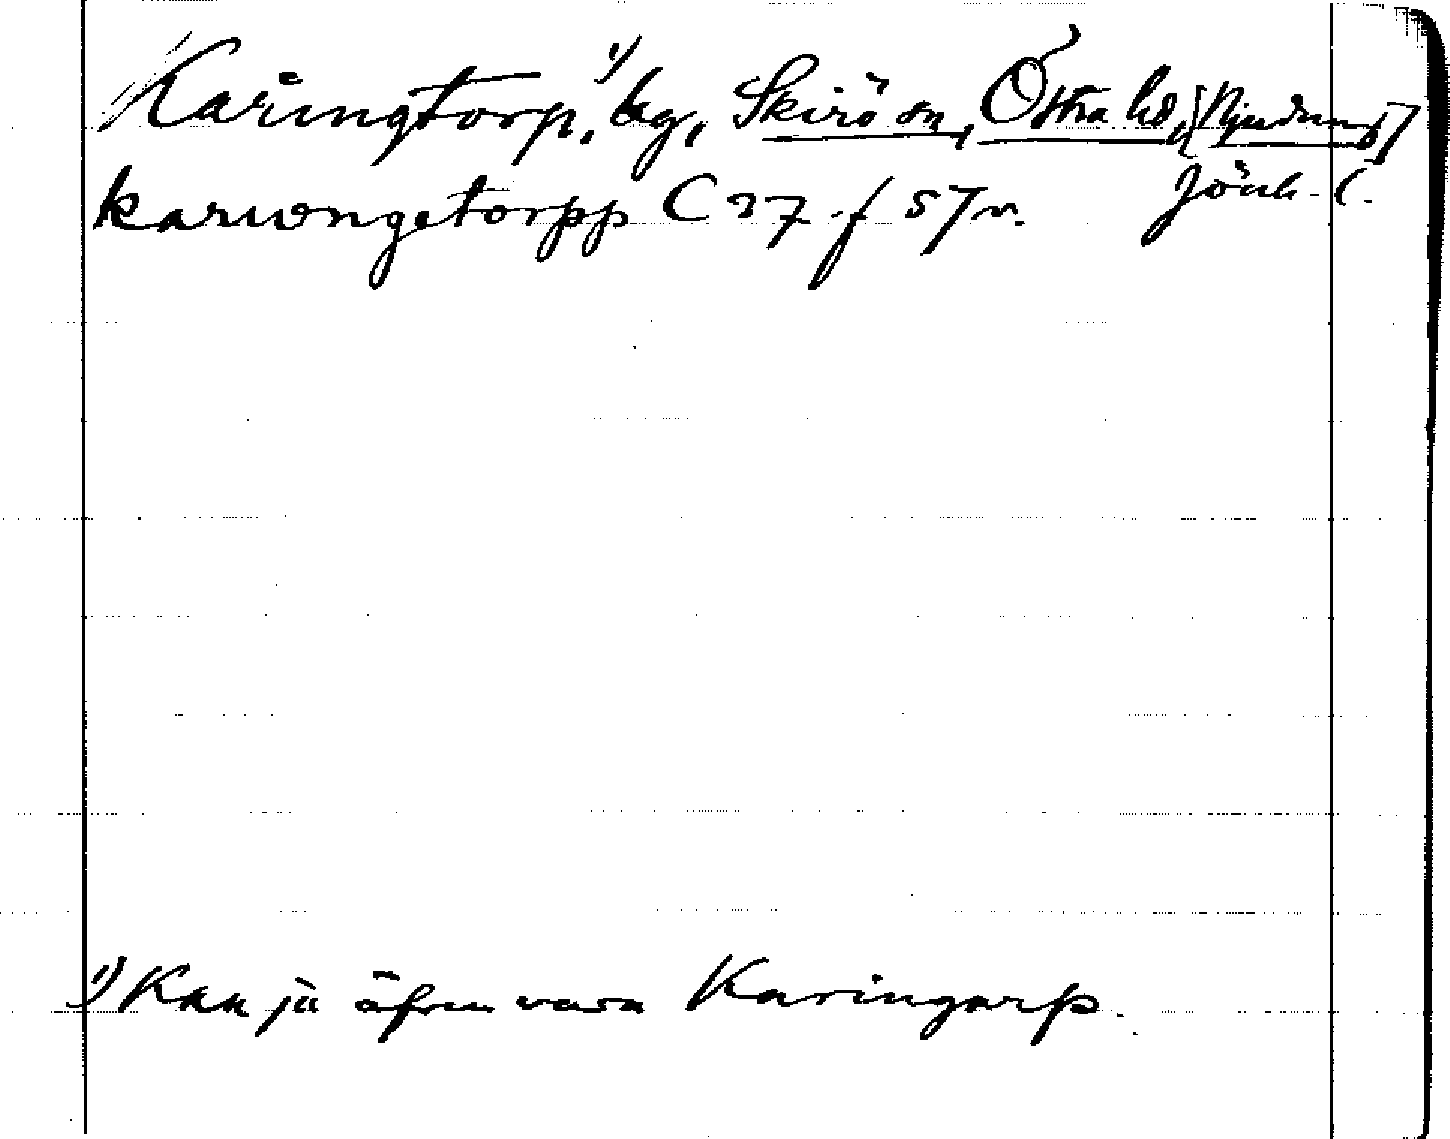 Karingtorp,¹⁾ bg, Skirö sn, Östra hd, [Njudung]
Jönk. l.
kariongetorpp C 27 f 57 v.
¹⁾ Kan ju äfven vara Karingarp.